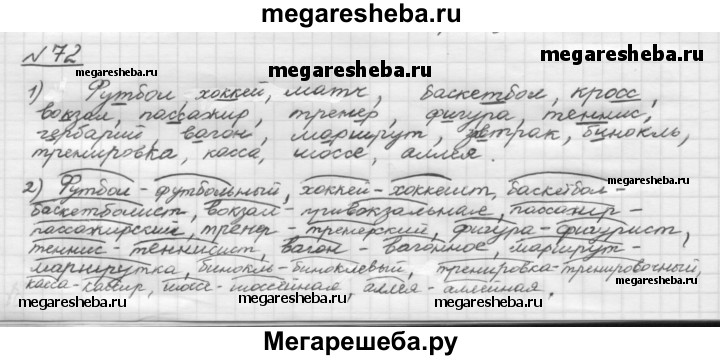 megaresheba.ru
№72
megaresheba.ru
megaresheba.ru
megaresheba.ru
1) Футбол, хоккей, матч, баскетбол, кросс,
вокзал, пассажир, тренер, фигура, теннис,
гербарий вагон, маршрут, завтрак, бинокль,
тренировка, касса, шоссе, аллея.
megaresheba.ru
megaresheba.ru
2) Футбол - футбольный, хоккей - хоккеист, баскетбол -
баскетболист, вокзал - привокзальная, пассажир -
пассажирский, тренер - тренерский, фигура - фигурист,
теннис - теннисист, вагон - вагонное, маршрут -
маршрутка, бинокль - биноклевый, тренировка - тренировочный,
касса - кассир, шоссе - шоссейная, аллея - аллейная.
megaresheba.ru
megaresheba.ru
megaresheba.ru
Мегарешеба.ру